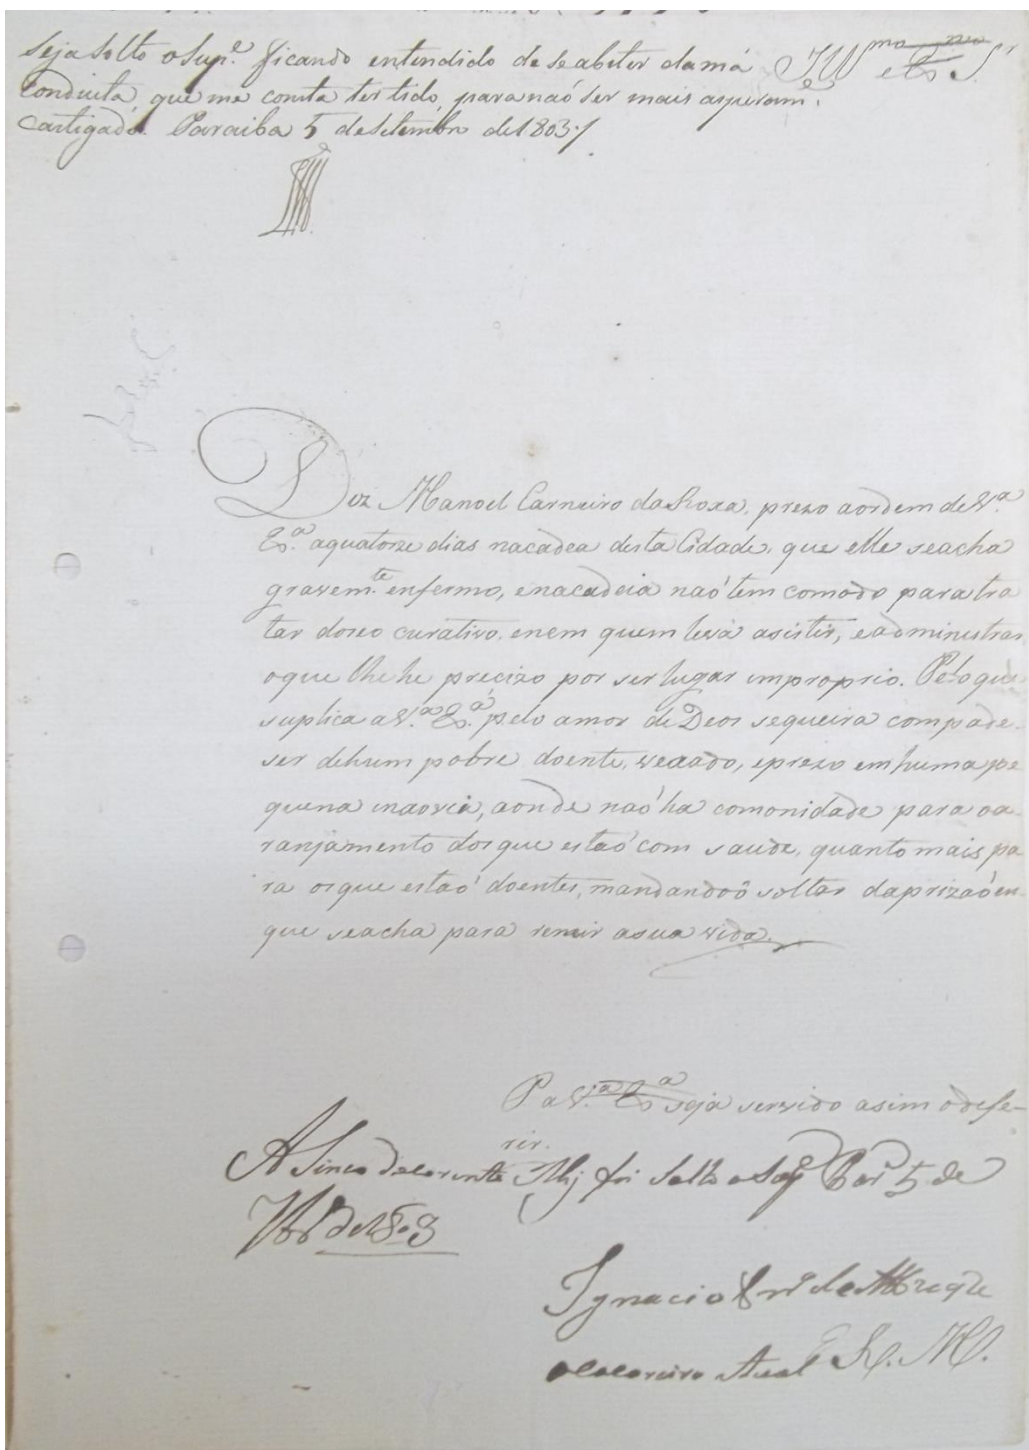 Seja solto o Sup.e ficando entendido de se abster da má
Conduita, que me consta ter tido, para naó ser mais asperam.e
Castigado. Paraiba 5 de Setembro de 1803.
Ill.mo e Ex.mo S.r
Diz Manoel Carneiro da Roxa, prezo a ordem de V.a
Ex.a a quatorze dias na cadea desta Cidade, que elle se acha
gravem.te enfermo, e na cadeia naó tem comodo para tra
tar do seo curativo, e nem quem lhe vá asistir, e administrar
o que lhe he precizo por ser lugar improprio. Pelo que
suplica a V.a Ex.a pelo amor de Deos se queira compade-
ser de hum pobre doente, vexado, e prezo em huma pe
quena inxovia, aonde naó ha comonidade para o a-
ranjamento dos que estaó com saude, quanto mais pa
ra os que estaó doentes, mandandoô soltar da prizaó en
que se acha para remir a sua vida.
P a V.a Ex.a seja servido asim o defe-
rir.
A Sinco do corente Mez foi solto o Sup.e Par.a 5 de
7br.o de 1803
Ignacio de
o Carcereiro Atual
E. R. M.